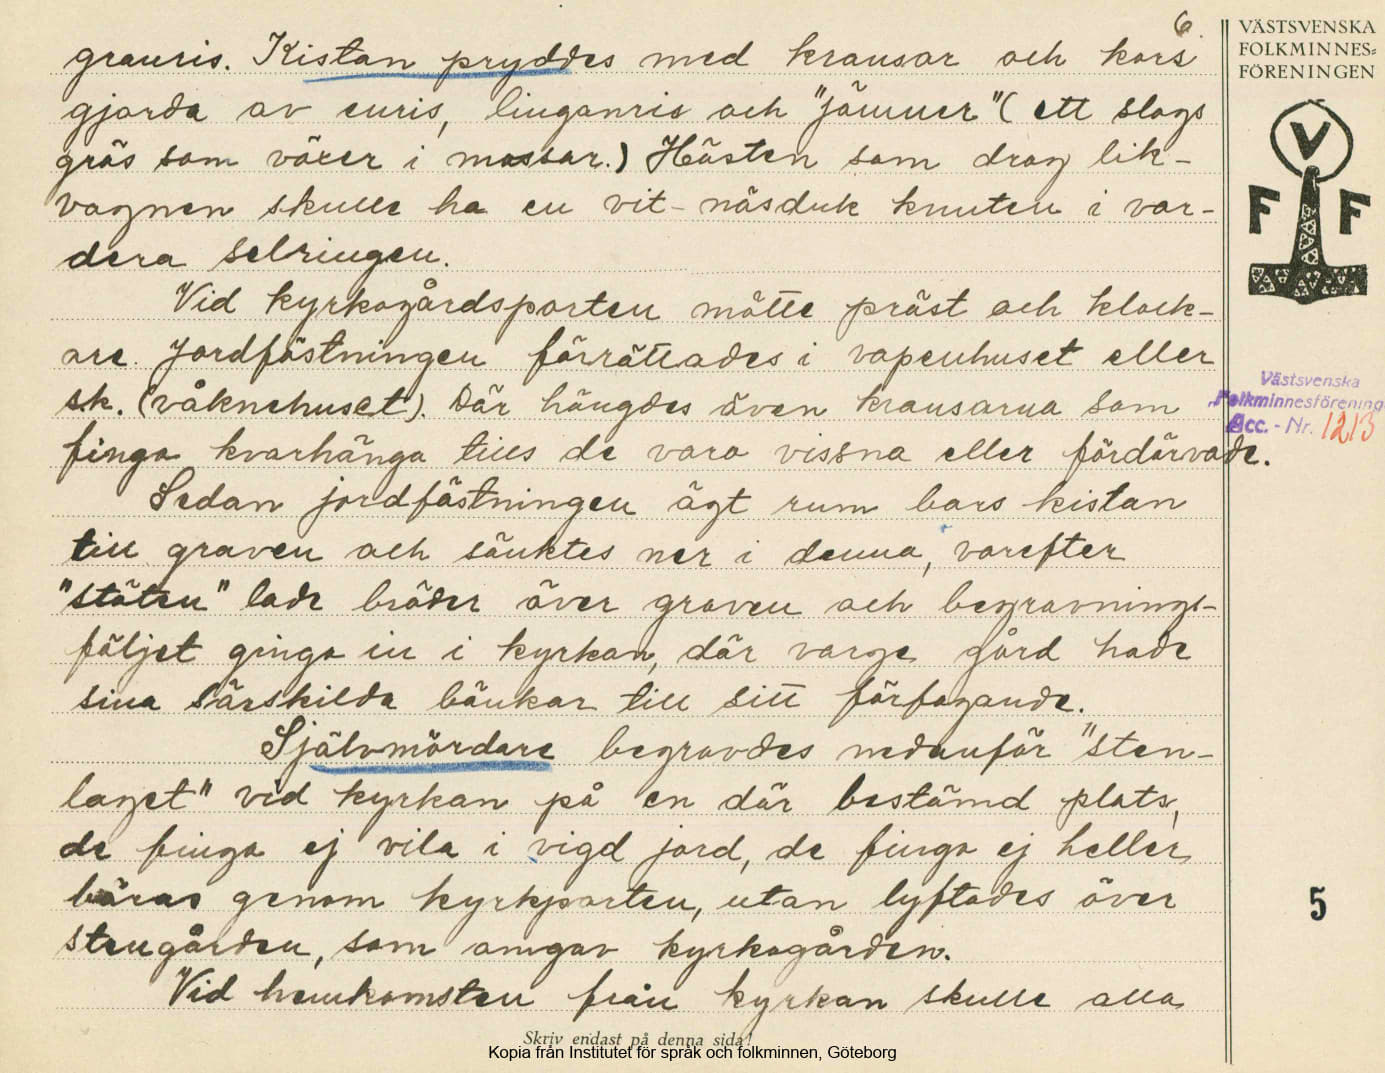 6
VÄSTSVENSKA
FOLKMINNES=
FÖRENINGEN
V
F F
granris. Kistan pryddes med kransar och kors
gjorda av enris, lingonris och "jämner" (ett slags
gräs som växer i mossar.) Hästen som drog lik-
vagnen skulle ha en vit näsduk knuten i var-
dera selringen.
Vid kyrkogårdsporten mötte präst och klock-
are. Jordfästningen förrättades i vapenhuset eller
sk. (våknehuset). Där hängdes även kransarna som
Västsvenska
Folkminnesförening
Acc. - Nr. 1213
fingo kvarhänga tills de voro vissna eller fördärvade.
Sedan jordfästningen ägt rum bars kistan
till graven och sänktes ner i denna, varefter
"stöten" lade bräder över graven och begravnings-
följet gingo in i kyrkan, där varge gård hade
sina särskilda bänkar till sitt förfogande.
Självmördare begravdes nedanför "sten-
laget" vid kyrkan på en där bestämd plats,
de fingo ej vila i vigd jord, de fingo ej heller
bäras genom kyrkporten, utan lyftades över
stengården, som omgav kyrkogården.
5
Vid hemkomsten från kyrkan skulle alla
Skriv endast på denna sida!
Kopia från Institutet för språk och folkminnen, Göteborg